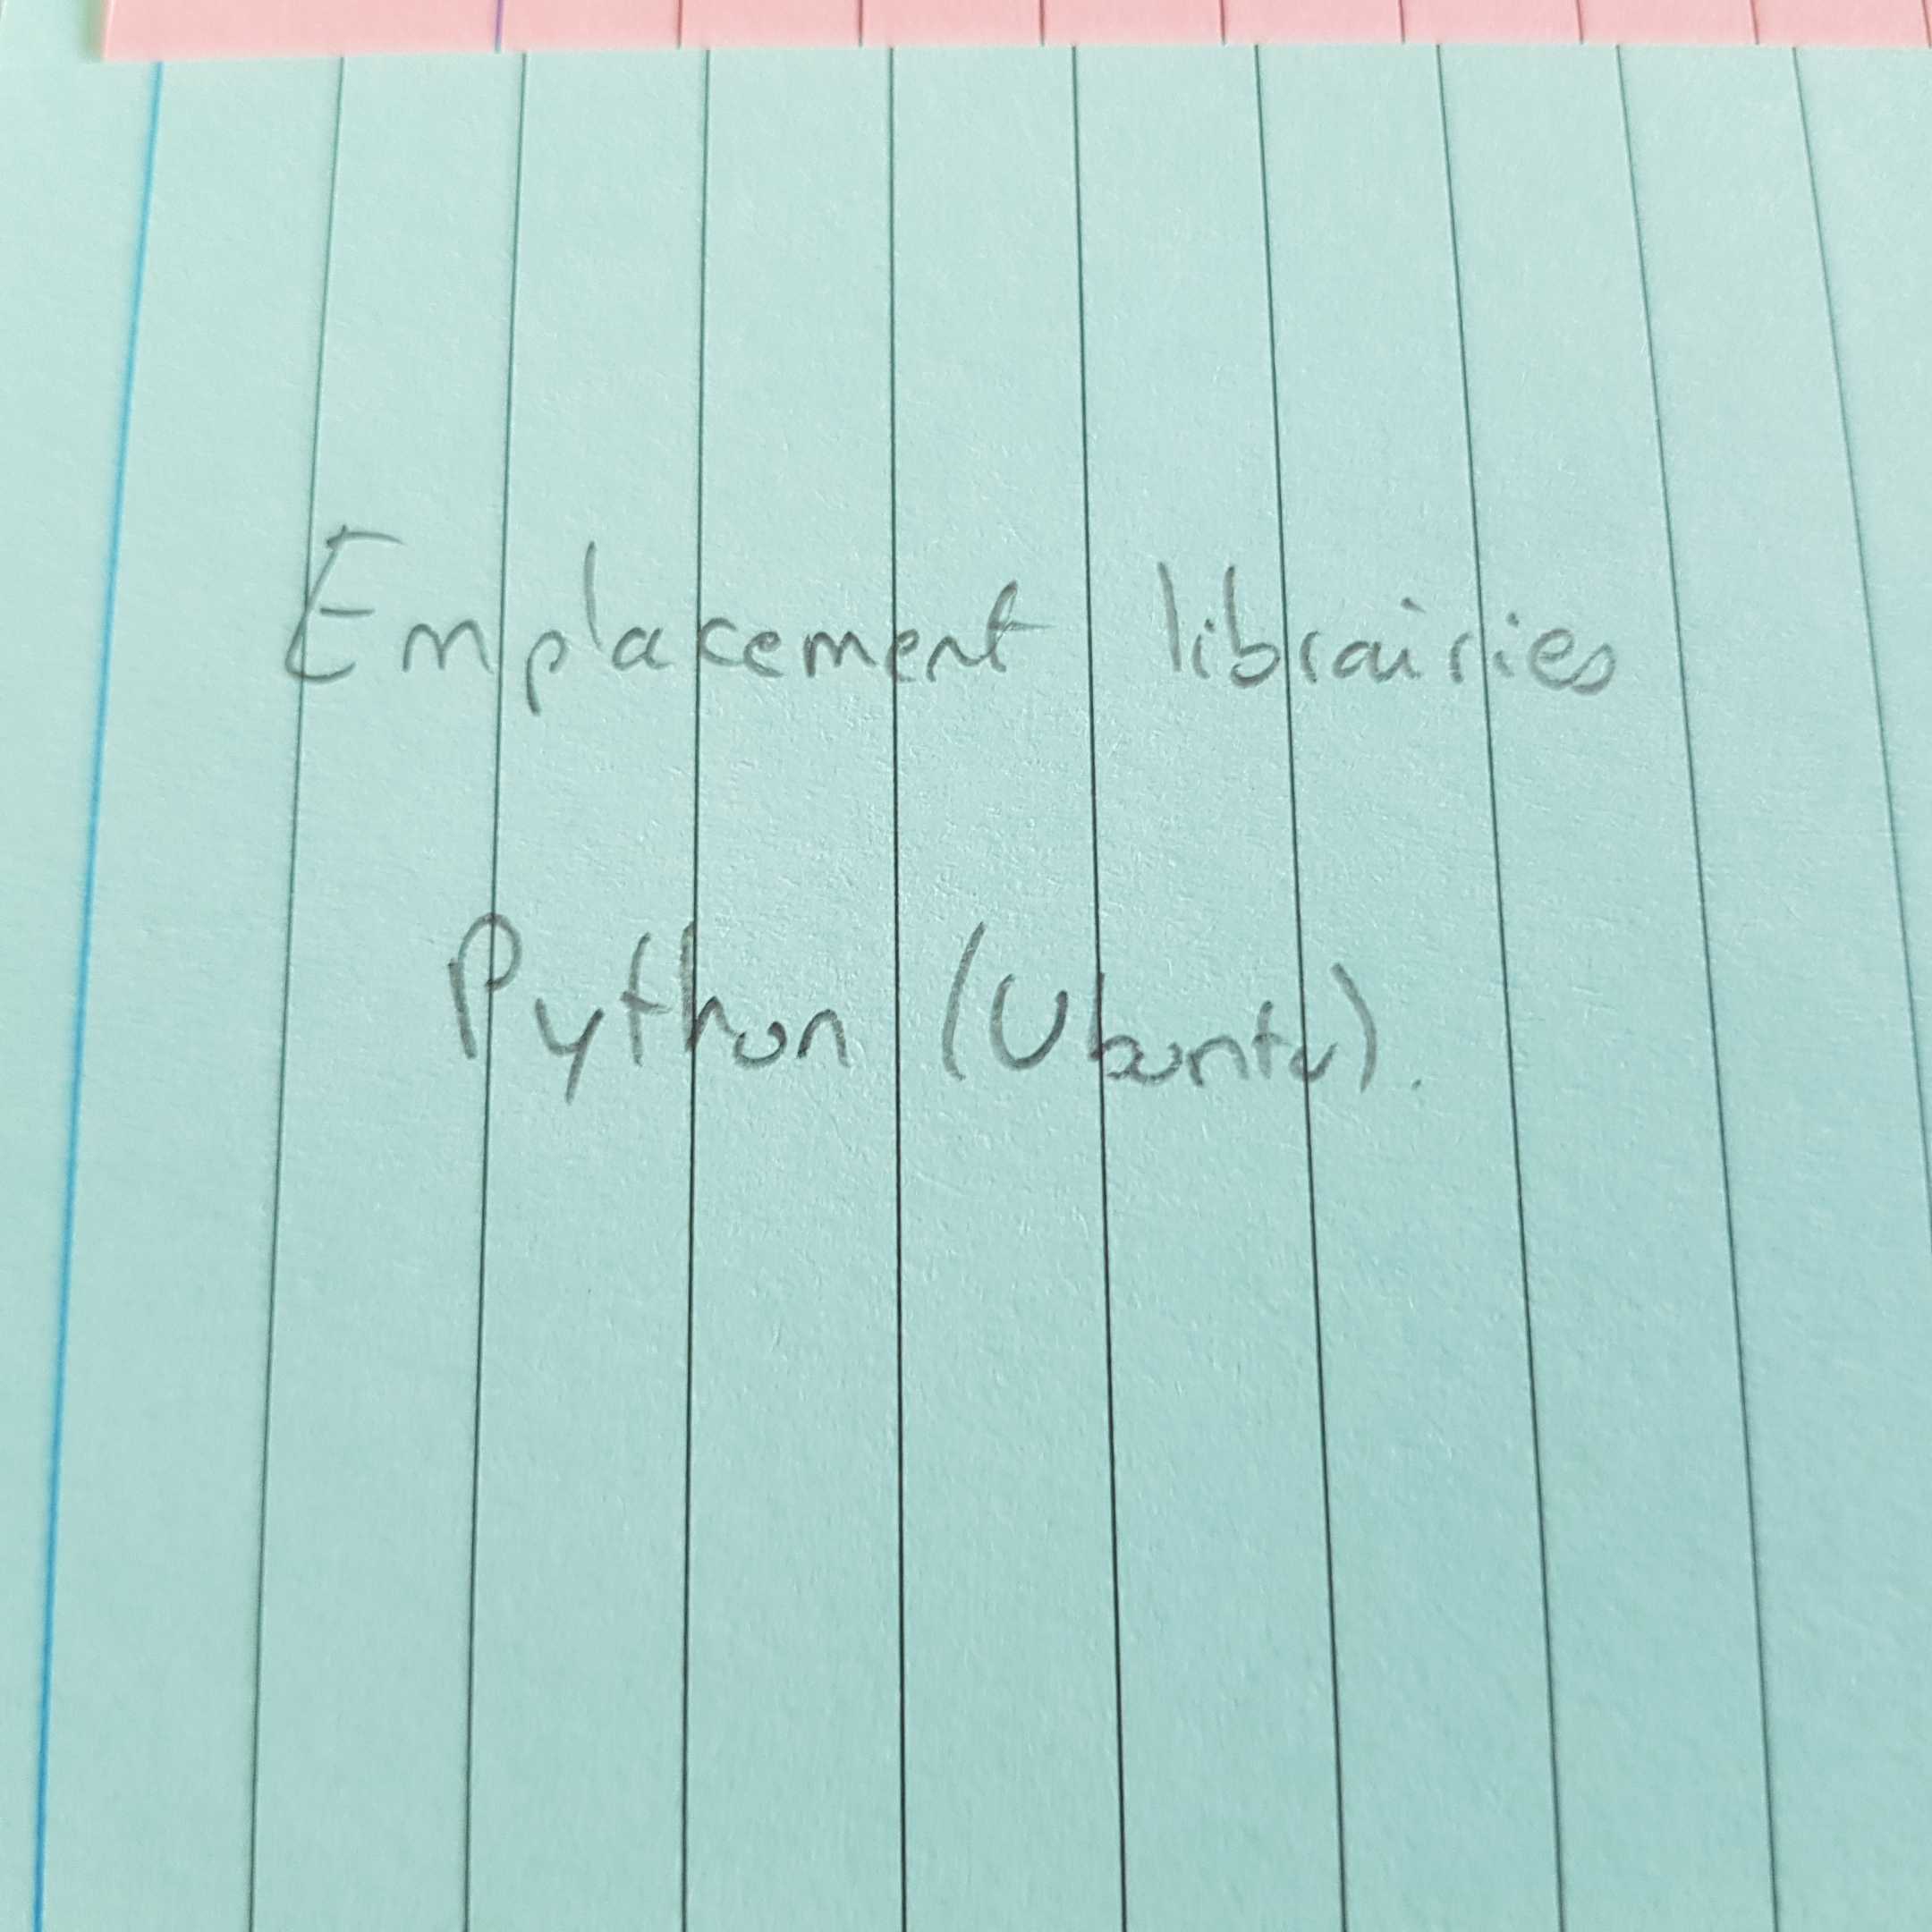 Emplacement librairies
Python (Ubuntu).